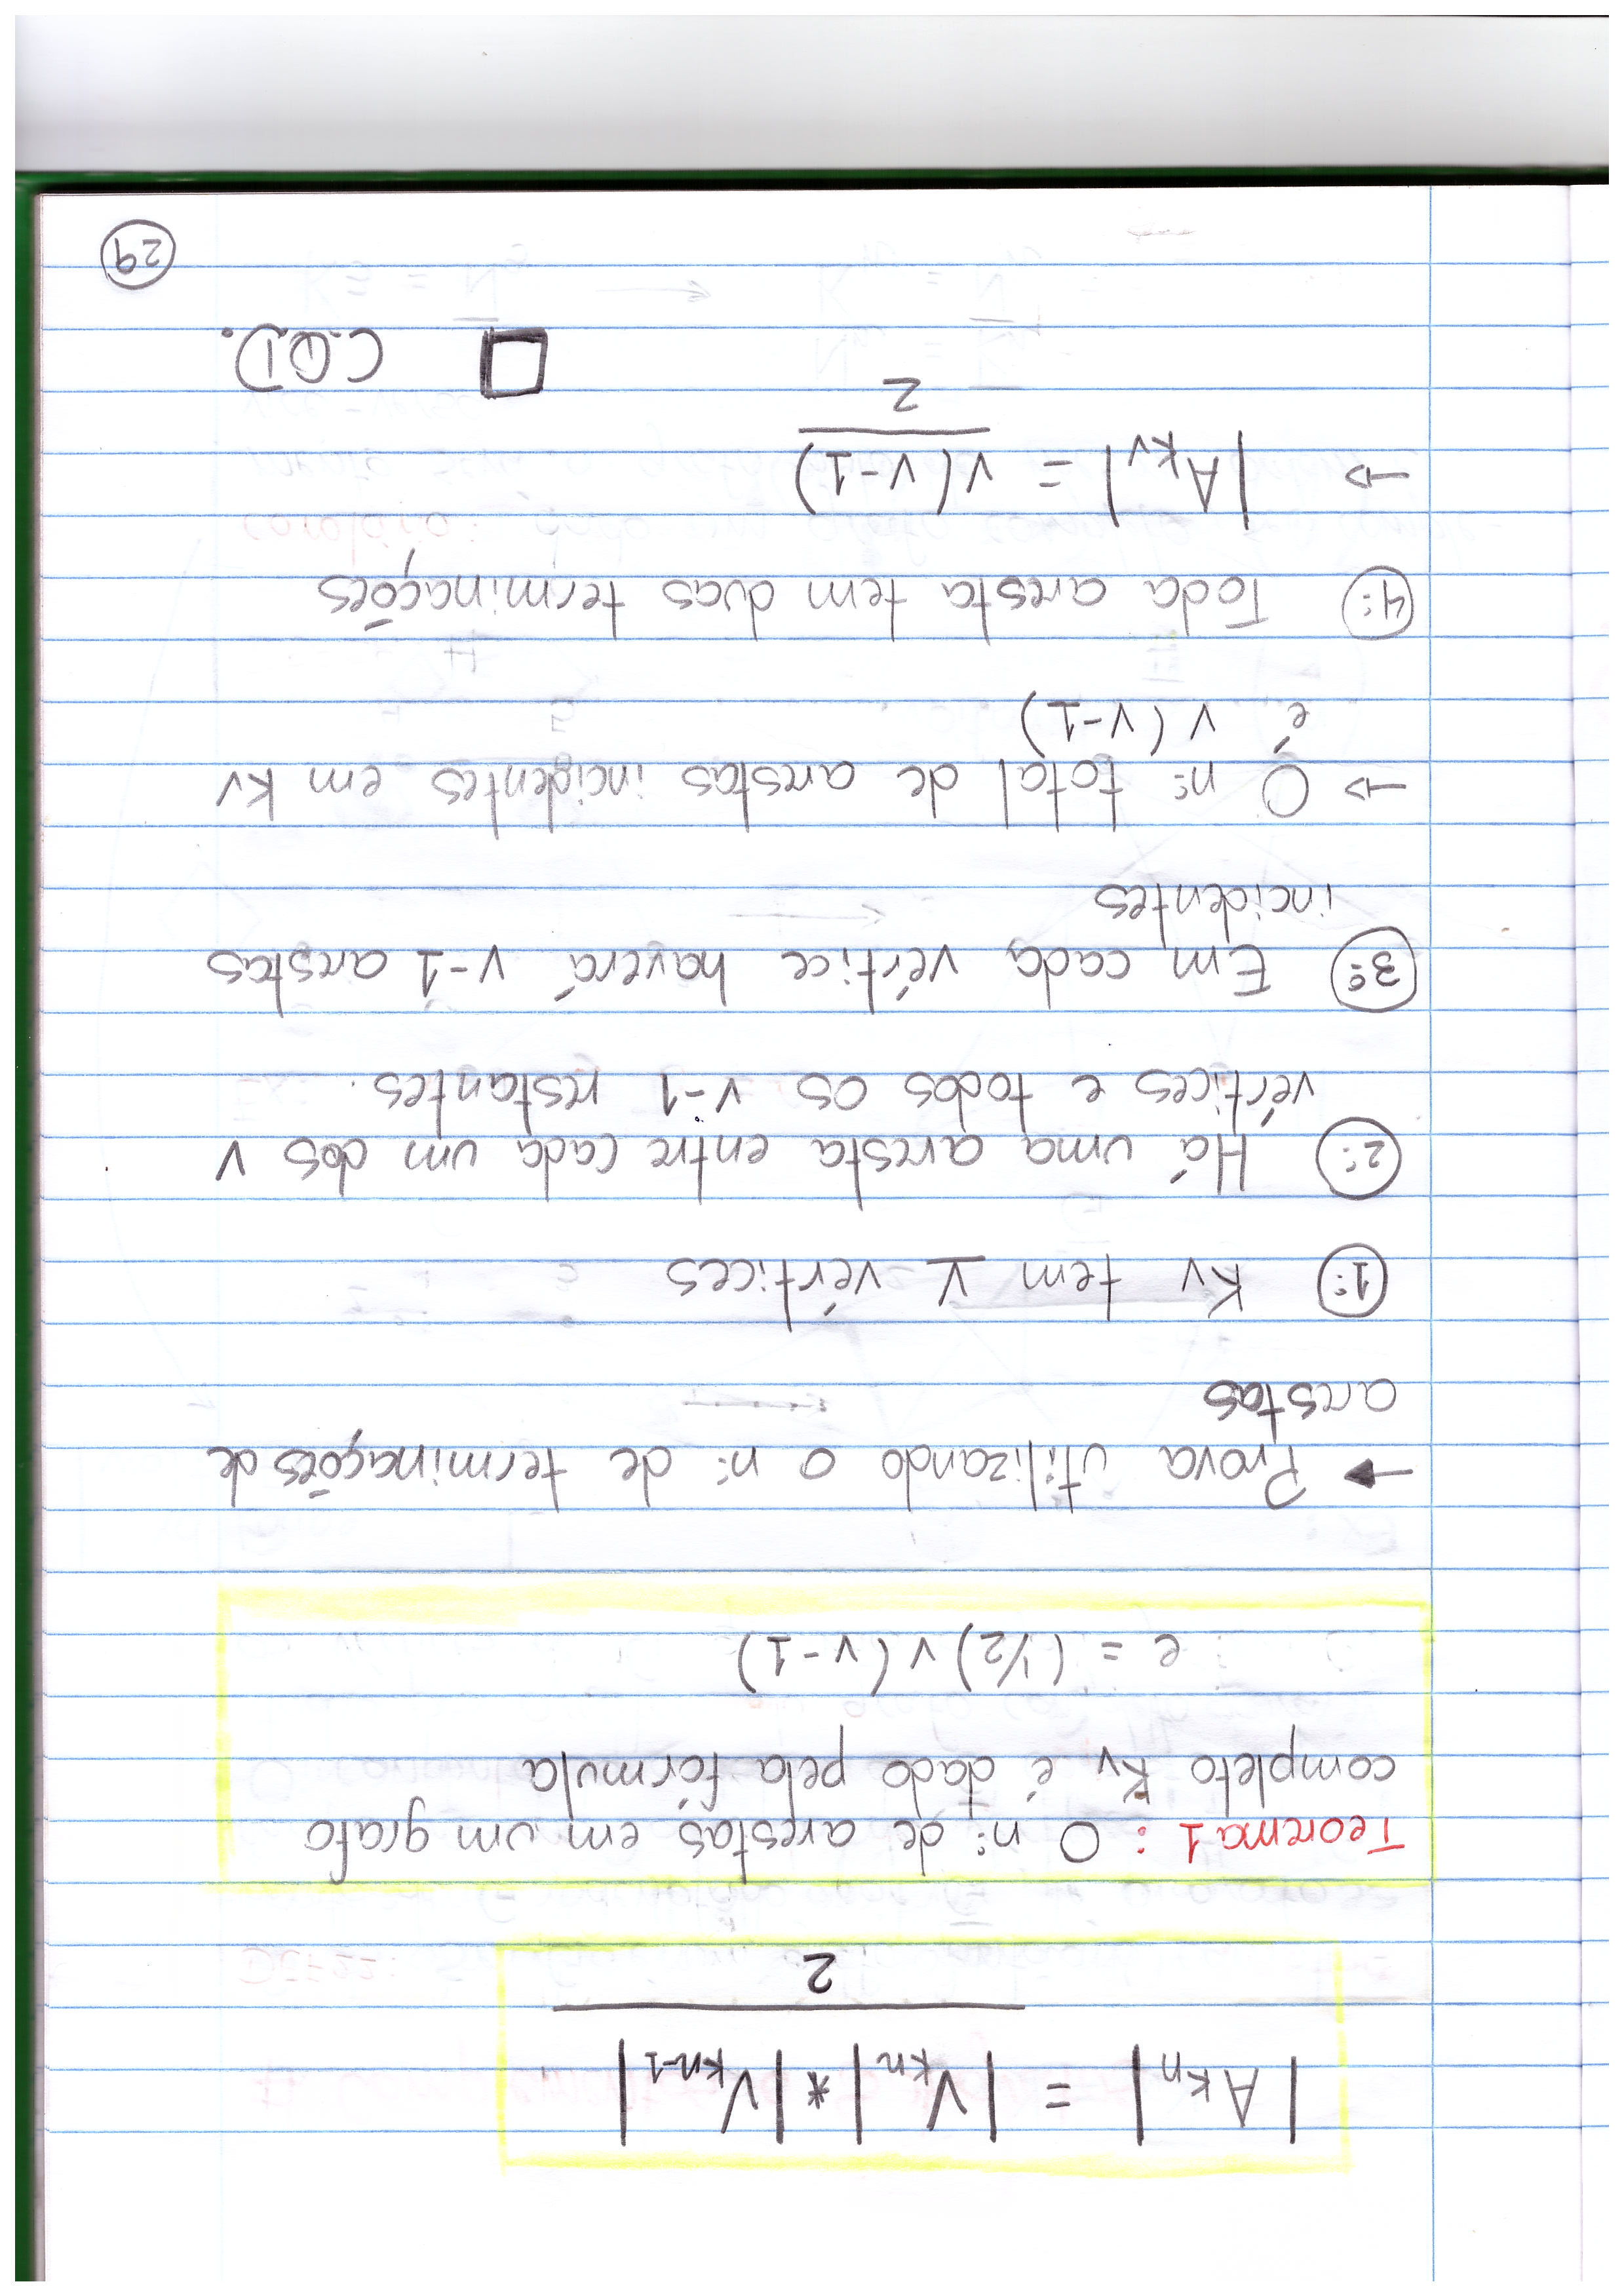 |A_{Kn}| = |V_{Kn}| * |V_{Kn-1}|
2
Teorema 1 : O nº de arestas em um grafo
completo Kv é dado pela fórmula
e = (1/2) v (v-1)
→ Prova utilizando o nº de terminações de
arestas
1º Kv tem v vértices
2º Há uma aresta entre cada um dos v
vértices e todos os v-1 restantes.
3º Em cada vértice haverá v-1 arestas
incidentes
→ O nº total de arestas incidentes em Kv
é v (v-1)
4º Toda aresta tem duas terminações
→ |A_{Kv}| = v(v-1)
2
□ C.Q.D.
29